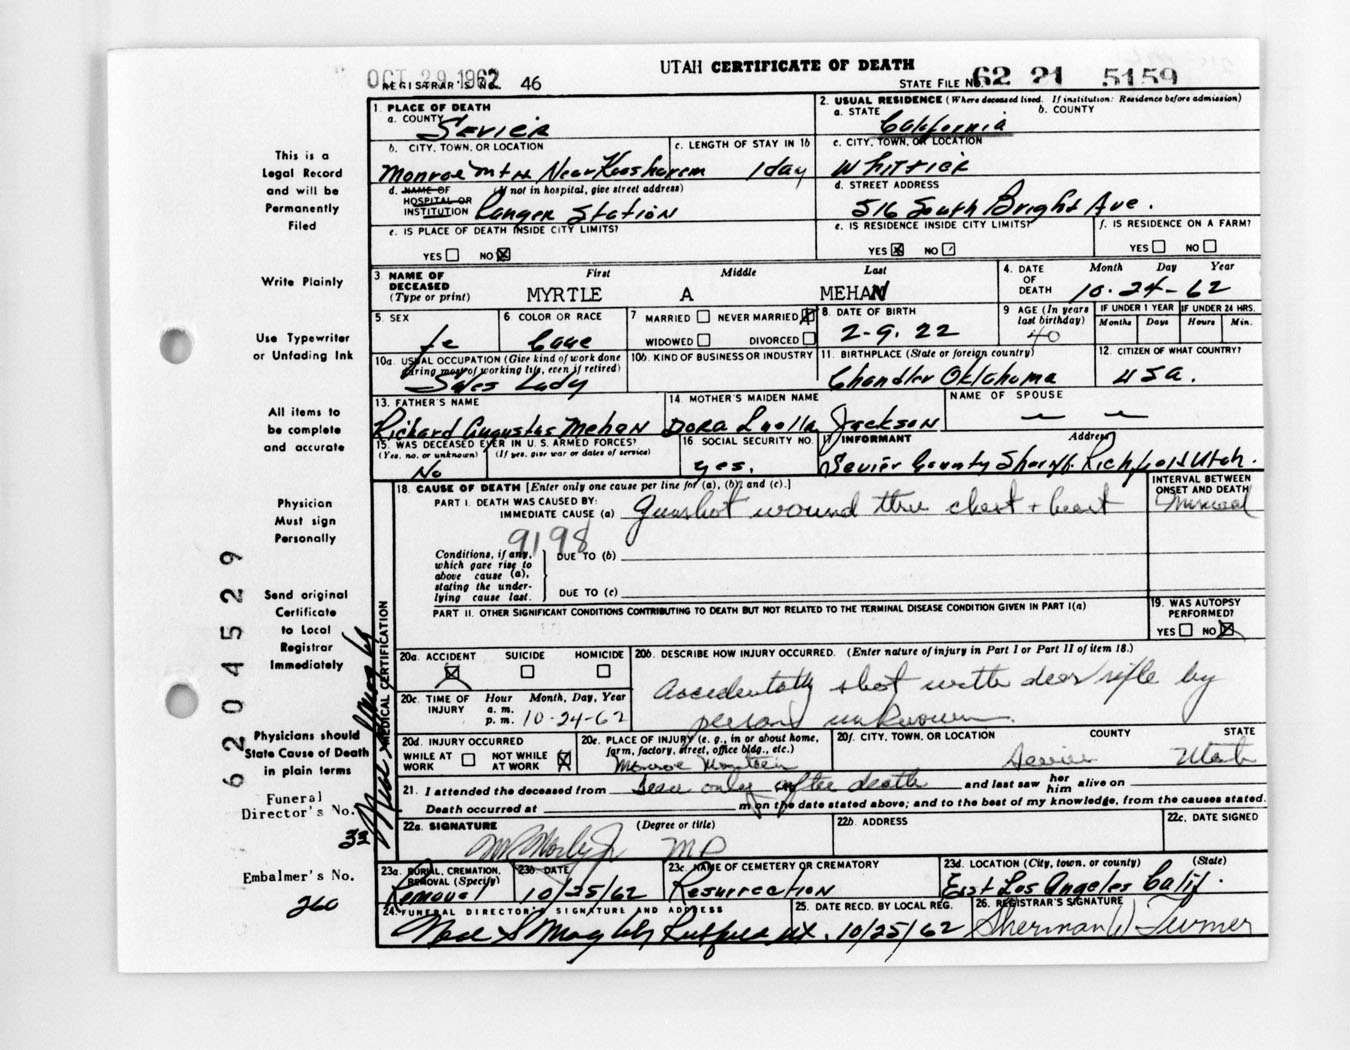 UTAH CERTIFICATE OF DEATH
OCT 29 1962
REGISTRAR'S NO. 46
STATE FILE NO. 62 21 5159
1. PLACE OF DEATH
a. COUNTY Sevier
2. USUAL RESIDENCE (Where deceased lived. If institution: Residence before admission)
a. STATE California b. COUNTY
b. CITY, TOWN, OR LOCATION Monroe Mtn Near Koosharem
c. LENGTH OF STAY IN 1b 1 day
c. CITY, TOWN, OR LOCATION Whittier
d. NAME OF HOSPITAL OR INSTITUTION (If not in hospital, give street address) Ranger Station
d. STREET ADDRESS 516 South Bright Ave.
e. IS PLACE OF DEATH INSIDE CITY LIMITS?
YES NO
e. IS RESIDENCE INSIDE CITY LIMITS?
YES NO
f. IS RESIDENCE ON A FARM?
YES NO
3 NAME OF DECEASED (Type or print)
First Middle Last
MYRTLE A MEHAN
4. DATE OF DEATH Month Day Year
10-24-62
5. SEX fe
6 COLOR OR RACE Cauc
7 MARRIED NEVER MARRIED
WIDOWED DIVORCED
8. DATE OF BIRTH 2-9-22
9 AGE (In years last birthday) 40
IF UNDER 1 YEAR Months Days
IF UNDER 24 HRS. Hours Min.
10a. USUAL OCCUPATION (Give kind of work done during most of working life, even if retired) Sales Lady
10b. KIND OF BUSINESS OR INDUSTRY
11. BIRTHPLACE (State or foreign country) Chandler Oklahoma
12. CITIZEN OF WHAT COUNTRY? USA.
13. FATHER'S NAME Richard Augustus Mehan
14 MOTHER'S MAIDEN NAME Dora Luella Jackson
NAME OF SPOUSE — —
15. WAS DECEASED EVER IN U. S. ARMED FORCES?
(Yes, no, or unknown) (If yes, give war or dates of service)
No
16 SOCIAL SECURITY NO. yes.
17 INFORMANT Address
Sevier County Sheriff. Richfield Utah.
18. CAUSE OF DEATH [Enter only one cause per line for (a), (b) and (c).]
INTERVAL BETWEEN ONSET AND DEATH
PART I. DEATH WAS CAUSED BY:
IMMEDIATE CAUSE (a) Gunshot wound thru chest + heart
9198
Conditions, if any, which gave rise to above cause (a), stating the underlying cause last.
DUE TO (b)
DUE TO (c)
PART II. OTHER SIGNIFICANT CONDITIONS CONTRIBUTING TO DEATH BUT NOT RELATED TO THE TERMINAL DISEASE CONDITION GIVEN IN PART I(a)
19. WAS AUTOPSY PERFORMED?
YES NO
20a. ACCIDENT SUICIDE HOMICIDE
20b. DESCRIBE HOW INJURY OCCURRED. (Enter nature of injury in Part I or Part II of item 18.)
Accidentally shot with deer rifle by
person unknown.
20c. TIME OF INJURY Hour Month, Day, Year
a. m.
p. m. 10-24-62
20d. INJURY OCCURRED
WHILE AT WORK NOT WHILE AT WORK
20e. PLACE OF INJURY (e. g., in or about home, farm, factory, street, office bldg., etc.)
Monroe Mountain
20f. CITY, TOWN, OR LOCATION COUNTY STATE
Sevier Utah
21. I attended the deceased from Seen only after death and last saw her him alive on
Death occurred at m on the date stated above; and to the best of my knowledge, from the causes stated.
22a. SIGNATURE (Degree or title) MD
22b. ADDRESS
22c. DATE SIGNED
23a. BURIAL, CREMATION, REMOVAL (Specify) Removal
23b. DATE 10/25/62
23c. NAME OF CEMETERY OR CREMATORY Resurrection
23d. LOCATION (City, town, or county) (State)
East Los Angeles Calif.
24. FUNERAL DIRECTOR'S SIGNATURE AND ADDRESS
Neal S Magleby Richfield Ut.
25. DATE RECD. BY LOCAL REG. 10/25/62
26. REGISTRAR'S SIGNATURE
Sherman W Turner
This is a
Legal Record
and will be
Permanently
Filed
Write Plainly
Use Typewriter
or Unfading Ink
All items to
be complete
and accurate
Physician
Must sign
Personally
Send original
Certificate
to Local
Registrar
Immediately
Physicians should
State Cause of Death
in plain terms
Funeral
Director's No.
Embalmer's No.
260
6204529
MEDICAL CERTIFICATION